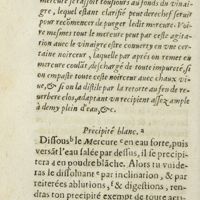 mercure se rassoit tousiours au fonds du vinai-
gre, lequel estant clarifié peut derechef seruir
pour recõmencer de purger ledit mercure. Voi-
re mesmes tout le mercure peut par ceste agi-
tation auec le vinaigre estre conuerty en vne cer
taine noirceur, laquelle par apres rendra le
mercure coulãt, dechargé de toute impureté, si
on empaste toute ceste noirceur auec chaux vi-
ue, & si on la distile par la retorte au feu de re-
uerbere clos, adaptant vn recipient assez ample
à demy plein d'eau, &c.
Precipité blanc. a
Dissous b le Mercure c en eau forte, puis
versãt l'eau salée par dessus, il se precipi-
tera d en poudre blãche. Alors tu vuide-
ras le dissoluant e par inclination, & par
reiterées ablutions, f & digestions, ren-
dras ton precipité exempt de toute acri-